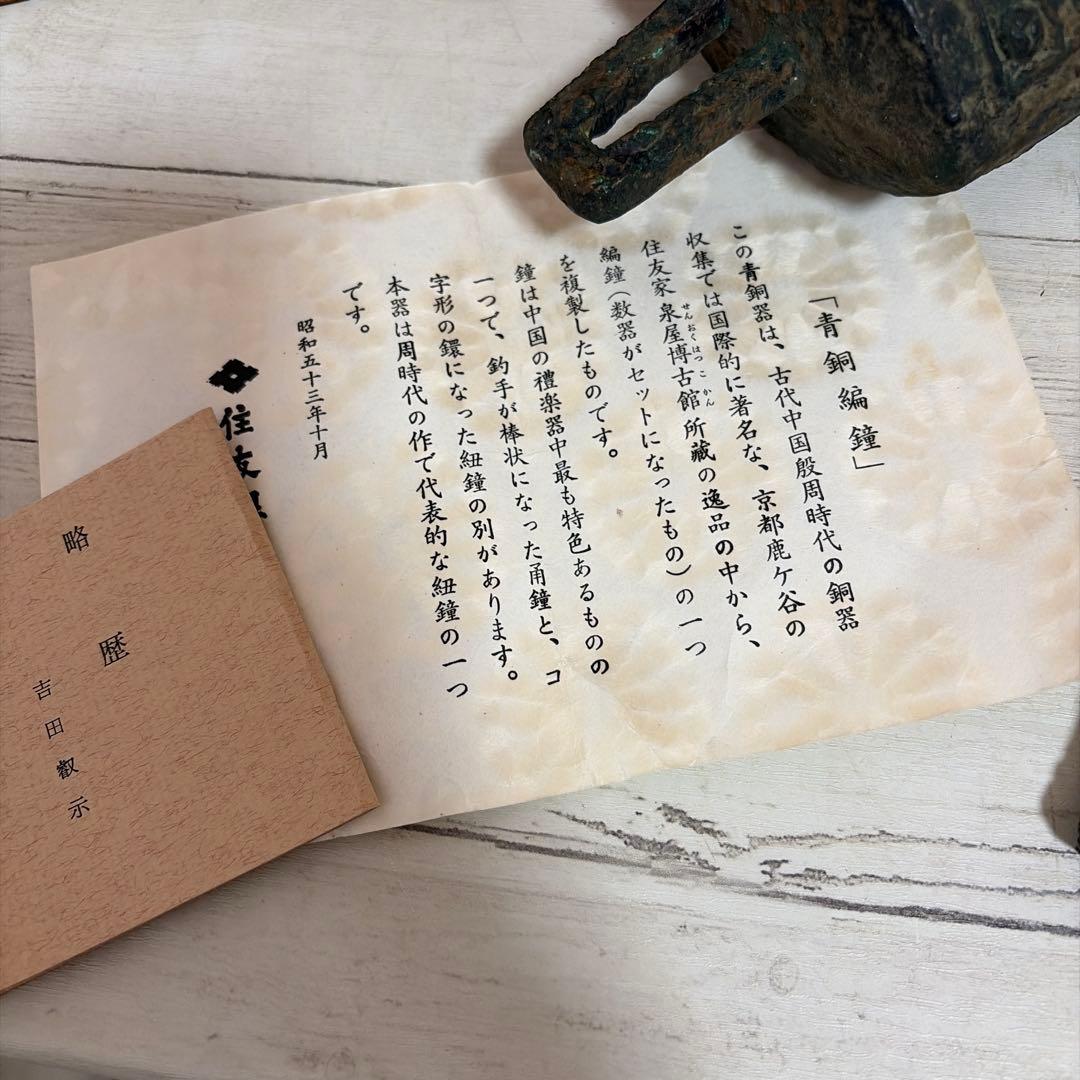 「青銅編鐘」
この青銅器は、古代中国殷周時代の銅器
収集では国際的に著名な、京都鹿ケ谷の
住友家泉屋博古館所蔵の逸品の中から、
せんおくはつこかん
編鐘(数器がセットになったもの)の一つ
を複製したものです。
鐘は中国の禮楽器中最も特色あるものの
一つで、釣手が棒状になった甬鐘と、コ
字形の鐶になった紐鐘の別があります。
本器は周時代の作で代表的な紐鐘の一つ
です。
昭和五十三年十月
住友
略歴
吉田叡示